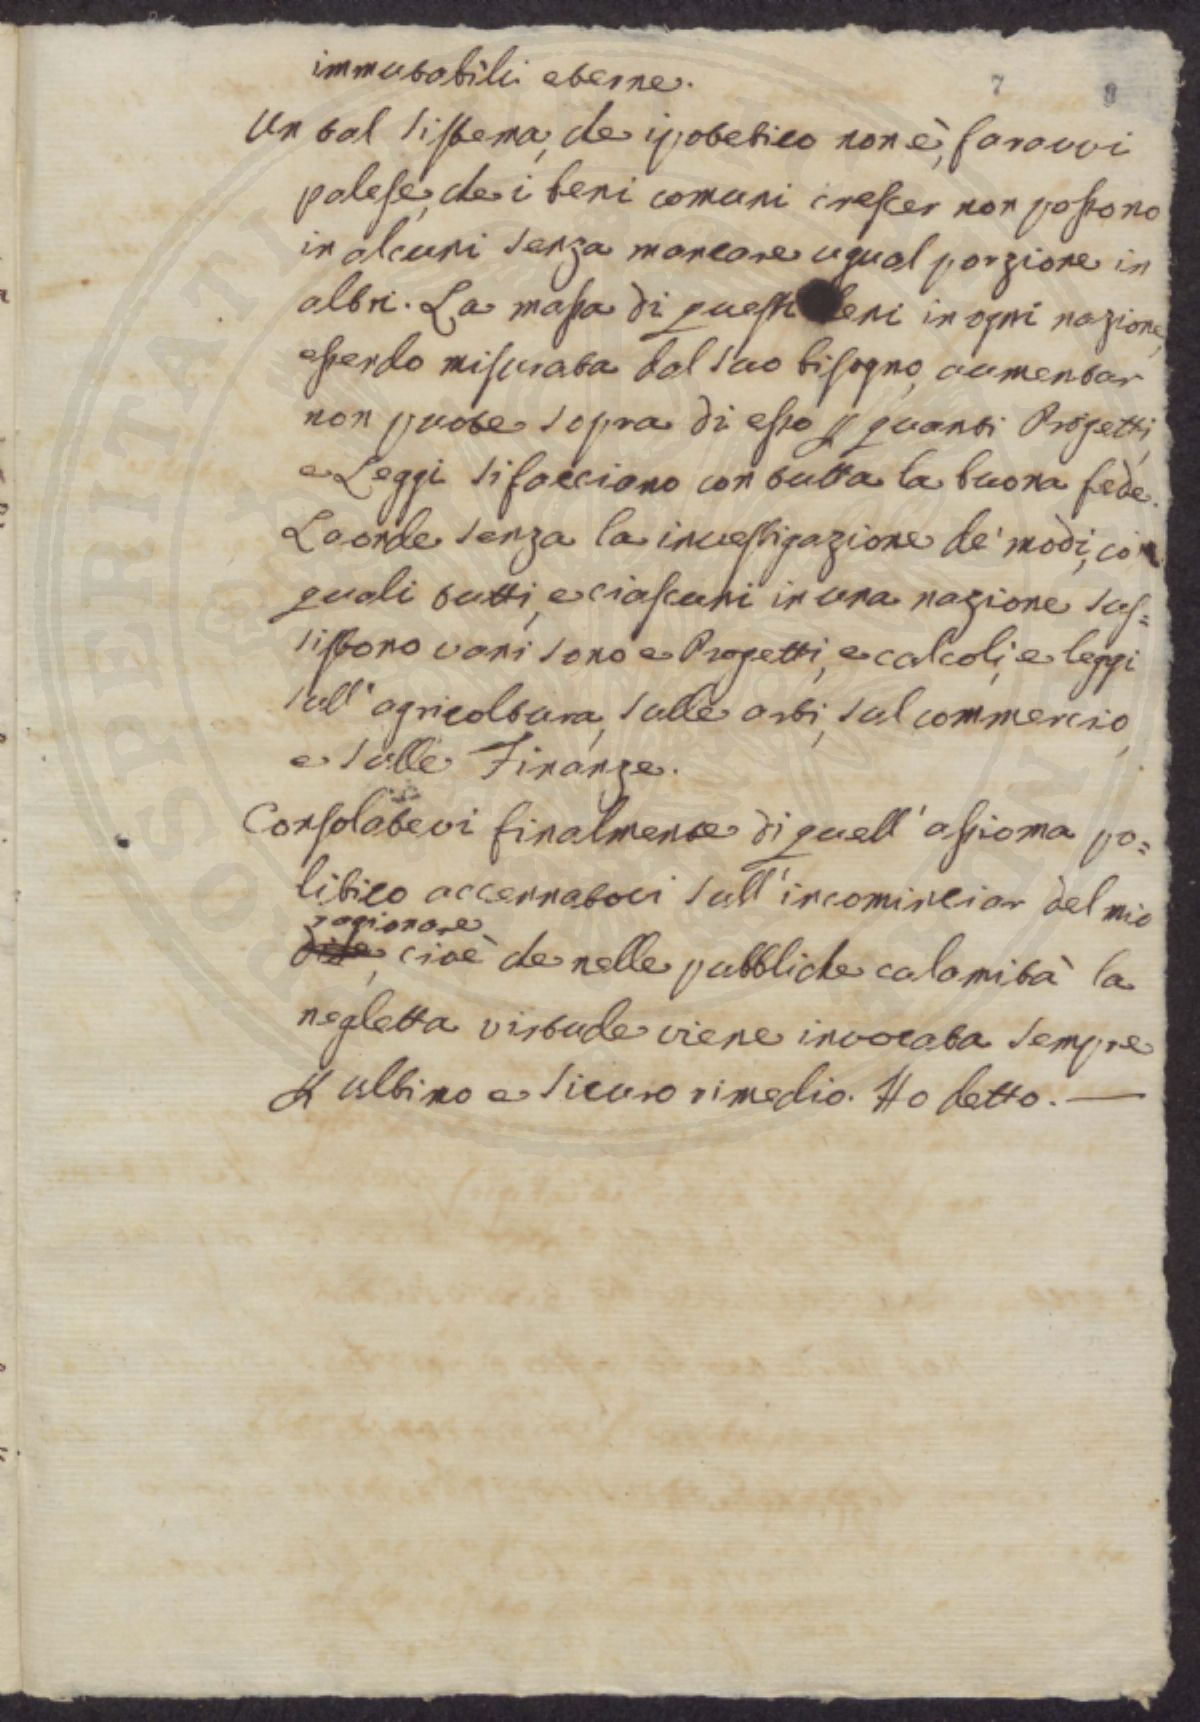 7 8
immutabili eterne.
Un tal sistema, che ipotetico non è, faravvi
palese, che i beni comuni crescer non possono
in alcuni senza mancare ugual porzione in
altri. La massa di questi beni in ogni nazione,
essendo misurata dal suo bisogno, aumentar
non puote sopra di esso p quanti Progetti,
e Leggi si facciano con tutta la buona fede.
Laonde senza la investigazione de' modi, co'
quali tutti, e ciascuni in una nazione sus=
sistono vani sono e Progetti, e calcoli, e leggi
sull' agricoltura, sulle arti, sul commercio,
e sulle Finanze.
Consolatevi finalmente di quell' assioma po=
litico accennatovi sull' incominciar del mio
ragionare
dire, cioè che nelle pubbliche calamità la
negletta virtude viene invocata sempre
p ultimo e sicuro rimedio. Ho detto. —
PROSPERITATI